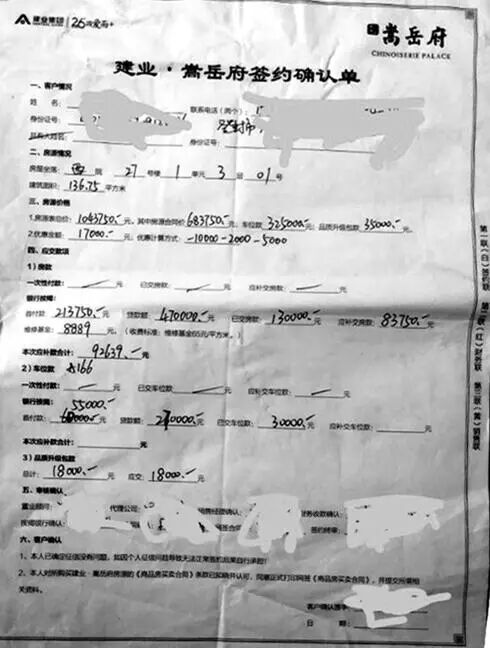 建业集团 26次爱而+
嵩岳府
CHINOISERIE PALACE
建业·嵩岳府签约确认单
一、客户情况
姓 名： 联系电话（两个）：
身份证号： 登封市
共有人姓名： 身份证号：
二、房源情况
房屋坐落： 西 院 27 号楼 1 单元 3 层 01 号
建筑面积：136.75 平方米
三、房源价格
1.房源表总价：1043750.- 元，其中房源合同价 683750.- 元；车位款 325000.- 元；品质升级包款 35000.- 元
2.优惠金额： 17000.- 元；优惠计算方式：-10000-2000-5000
四、应交款项
1）房款
一次性付款： 元 已交房款： 元 应补交房款： 元
银行按揭：
首付款 213750.- 元 贷款额 470000.- 元 已交房款： 130000.- 元 应补交房款： 83750.- 元
维修基金： 8889 元。（收费标准：维修基金65元/平方米。）
本次应补款合计： 92639.- 元
2）车位款 166
一次性付款： 元 已交车位款： 元 应补交车位款： 元
银行按揭： 55000.-
首付款： 元 贷款额： 270000.- 元 已交车位款： 30000.- 元 应补交车位款： 元
本次应补款合计： 元
3）品质升级包款
总计： 18000.- 元 应交： 18000.- 元
五、审核确认
置业顾问： 代理公司： 销售经理确认： 财务收款确认：
按揭银行确认： 网签合同 签约终审：
六、客户确认
1、本人已确定征信没有问题，如因个人征信问题导致无法正常签约后果自行承担！
2、本人对所购买建业·嵩岳府房源的《商品房买卖合同》条款已知晓并认可，同意正式打印网签《商品房买卖合同》，并提交所需相
关资料。
客户确认签字：
日 期：
第一联（白）签约联 第二联（红）财务联 第三联（黄）销售联